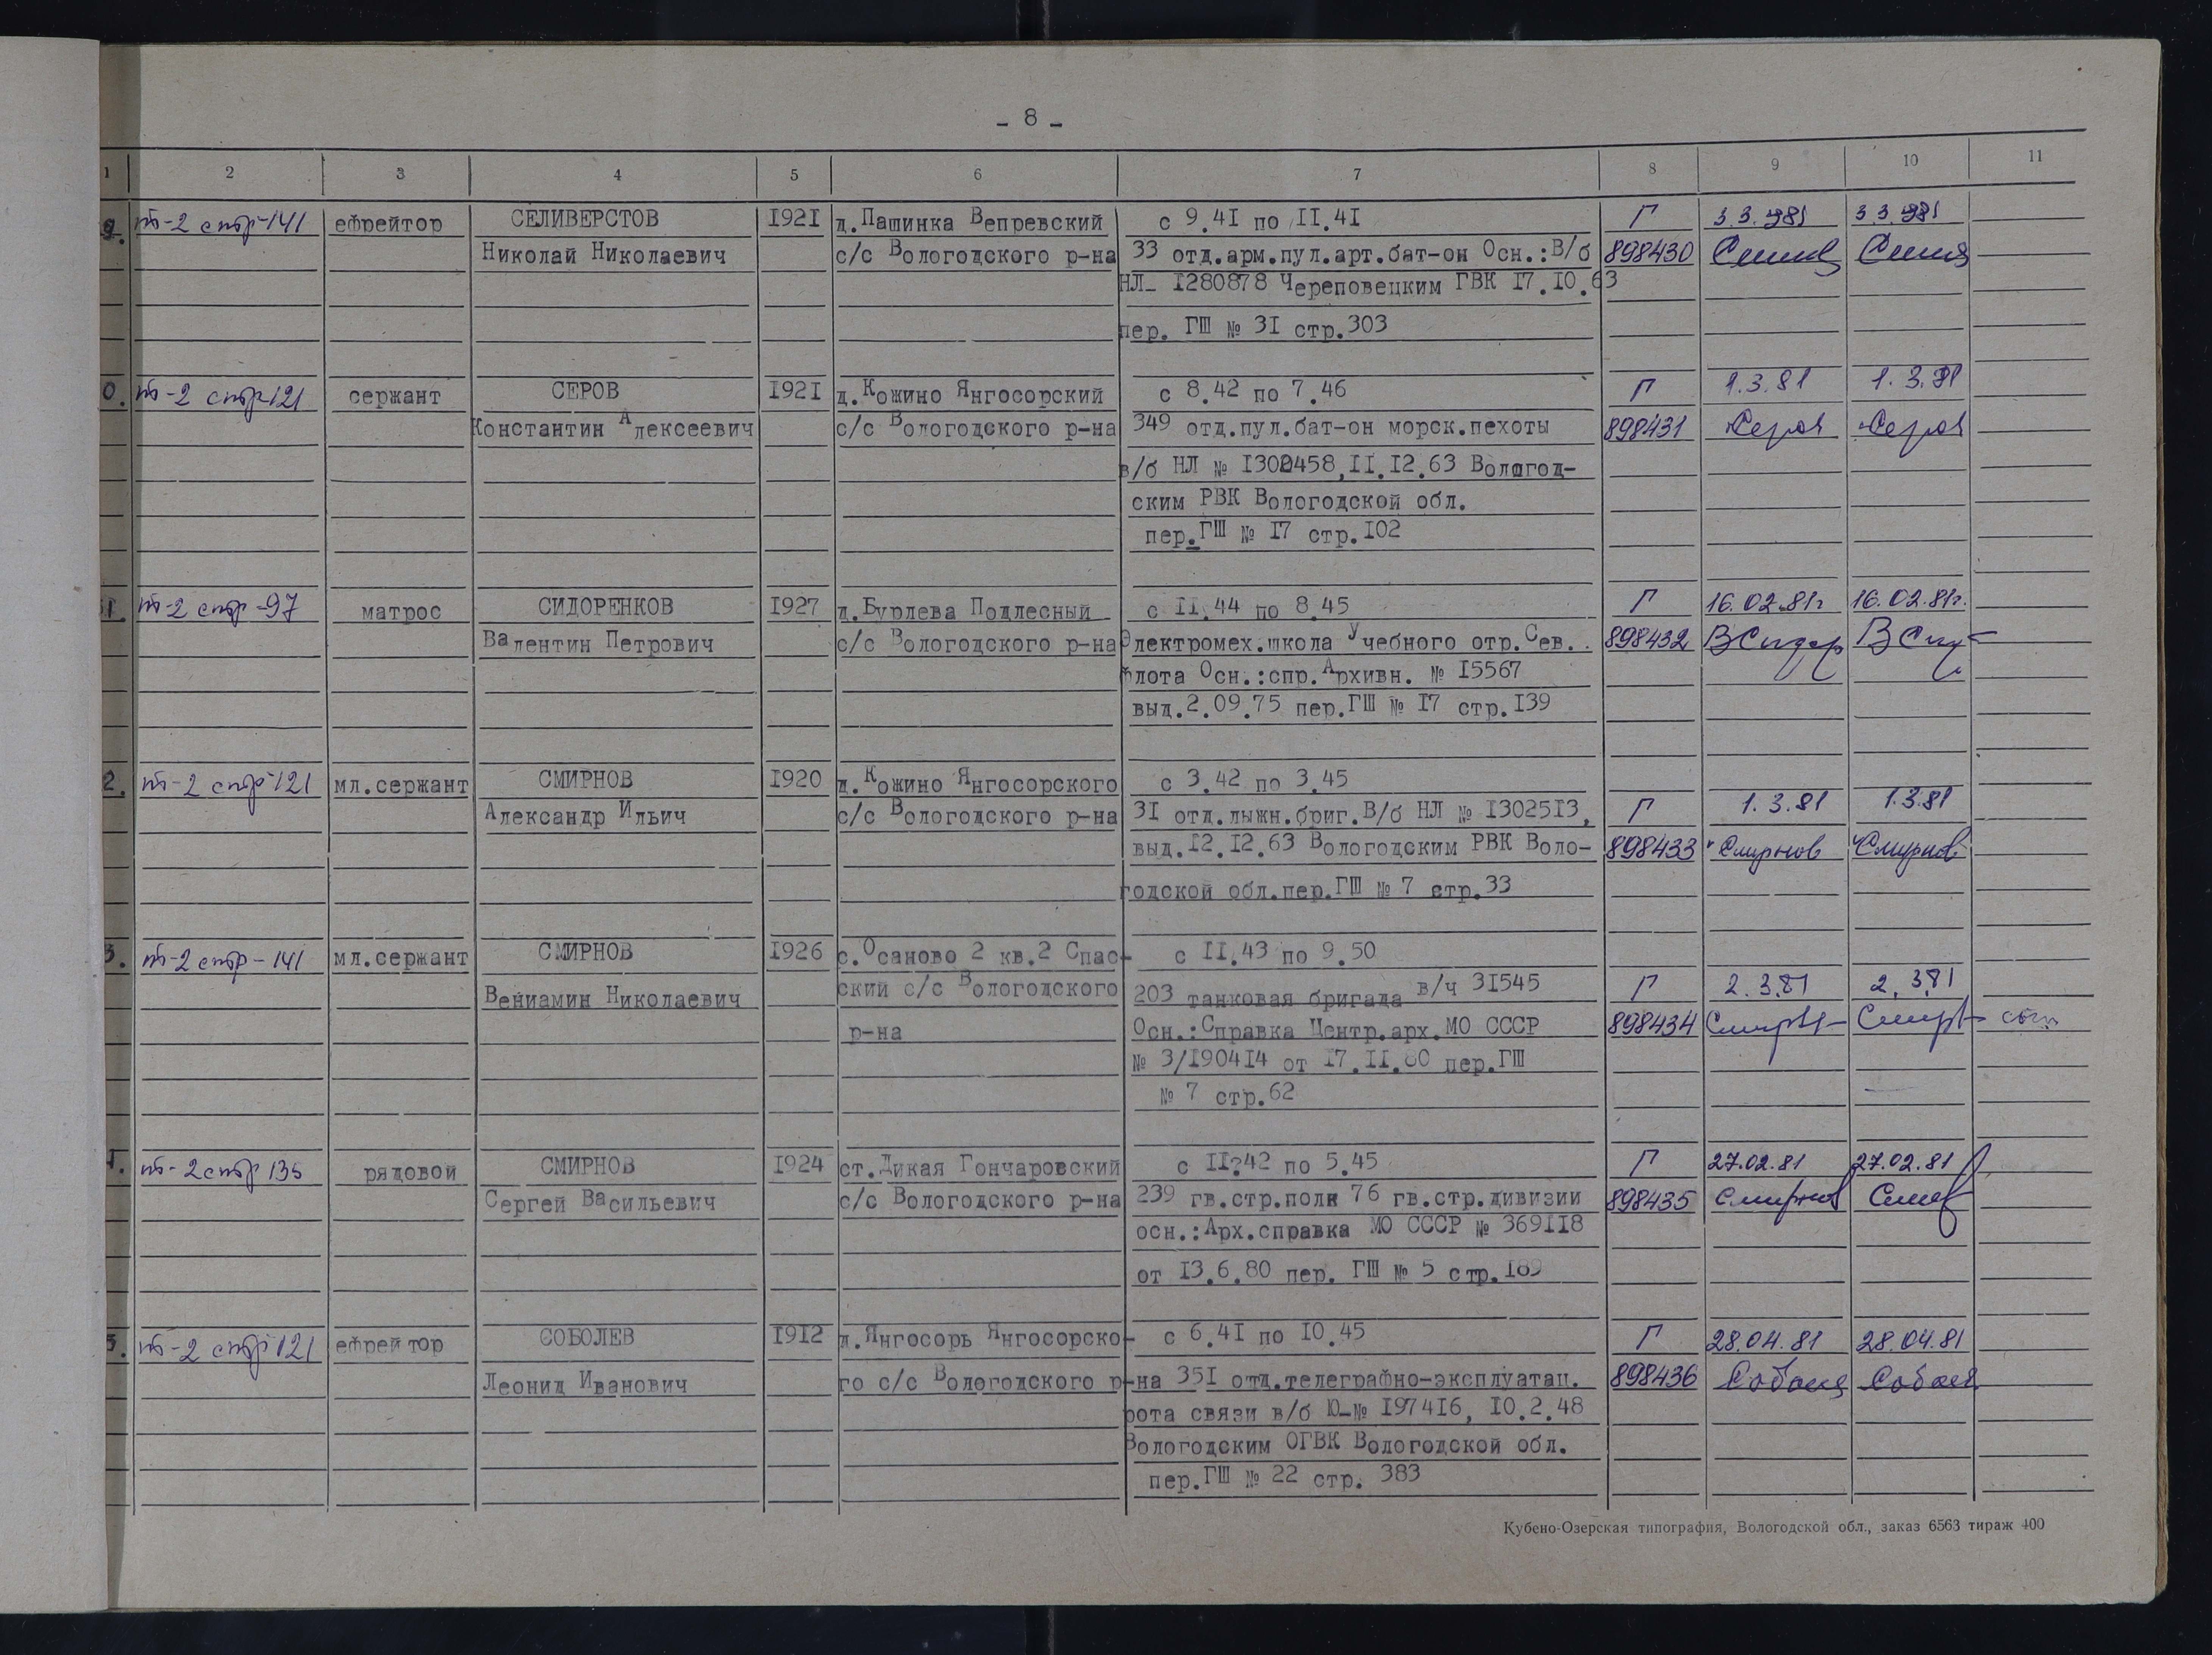 - 8 -
1 2 3 4 5 6 7 8 9 10 11
9. т-2 стр-141 ефрейтор СЕЛИВЕРСТОВ 1921 д.Пашинка Вепревский с 9.41 по 11.41 Г 3.3.1981 3.3.1981
Николай Николаевич с/с Вологодского р-на 33 отд.арм.пул.арт.бат-он Осн.:В/б 898430
НЛ- 1280878 Череповецким ГВК 17.10.63
пер. ГШ № 31 стр.303
0. т-2 стр-121 сержант СЕРОВ 1921 д.Кожино Янгосорский с 8.42 по 7.46 Г 1.3.81 1.3.81
Константин Алексеевич с/с Вологодского р-на 349 отд.пул.бат-он морск.пехоты 898431 Серов Серов
в/б НЛ № 1302458,11.12.63 Вологод-
ским РВК Вологодской обл.
пер.ГШ № 17 стр.102
1. т-2 стр-97 матрос СИДОРЕНКОВ 1927 д.Бурлева Подлесный с 11.44 по 8.45 Г 16.02.81г 16.02.81г.
Валентин Петрович с/с Вологодского р-на Электромех.школа Учебного отр.Сев. 898432 ВСидор
флота Осн.:спр.Архивн. № 15567
выд.2.09.75 пер.ГШ № 17 стр.139
2. т-2 стр-121 мл.сержант СМИРНОВ 1920 д.Кожино Янгосорского с 3.42 по 3.45
Александр Ильич с/с Вологодского р-на 31 отд.лыжн.бриг.В/б НЛ № 1302513, Г 1.3.81 1.3.81
выд.12.12.63 Вологодским РВК Воло- 898433 Смирнов Смирнов
годской обл.пер.ГШ № 7 стр.33
3. т-2 стр-141 мл.сержант СМИРНОВ 1926 с.Осаново 2 кв.2 Спас- с 11.43 по 9.50
Вениамин Николаевич ский с/с Вологодского 203 танковая бригада в/ч 31545 Г 2.3.81 2.3.81
р-на Осн.:Справка Центр.арх.МО СССР 898434
№ 3/190414 от 17.11.80 пер.ГШ
№ 7 стр.62
4. т-2 стр 135 рядовой СМИРНОВ 1924 ст.Дикая Гончаровский с 11?42 по 5.45 Г 27.02.81 27.02.81
Сергей Васильевич с/с Вологодского р-на 239 гв.стр.полк 76 гв.стр.дивизии 898435 Смирнов
осн.:Арх.справка МО СССР № 369118
от 13.6.80 пер. ГШ № 5 стр.189
5. т-2 стр 121 ефрейтор СОБОЛЕВ 1912 д.Янгосорь Янгосорско- с 6.41 по 10.45 Г 28.04.81 28.04.81
Леонид Иванович го с/с Вологодского р-на 351 отд.телеграфно-эксплуатац. 898436
рота связи в/б Ю-№ 197416, 10.2.48
Вологодским ОГВК Вологодской обл.
пер.ГШ № 22 стр. 383
Кубено-Озерская типография, Вологодской обл., заказ 6563 тираж 400